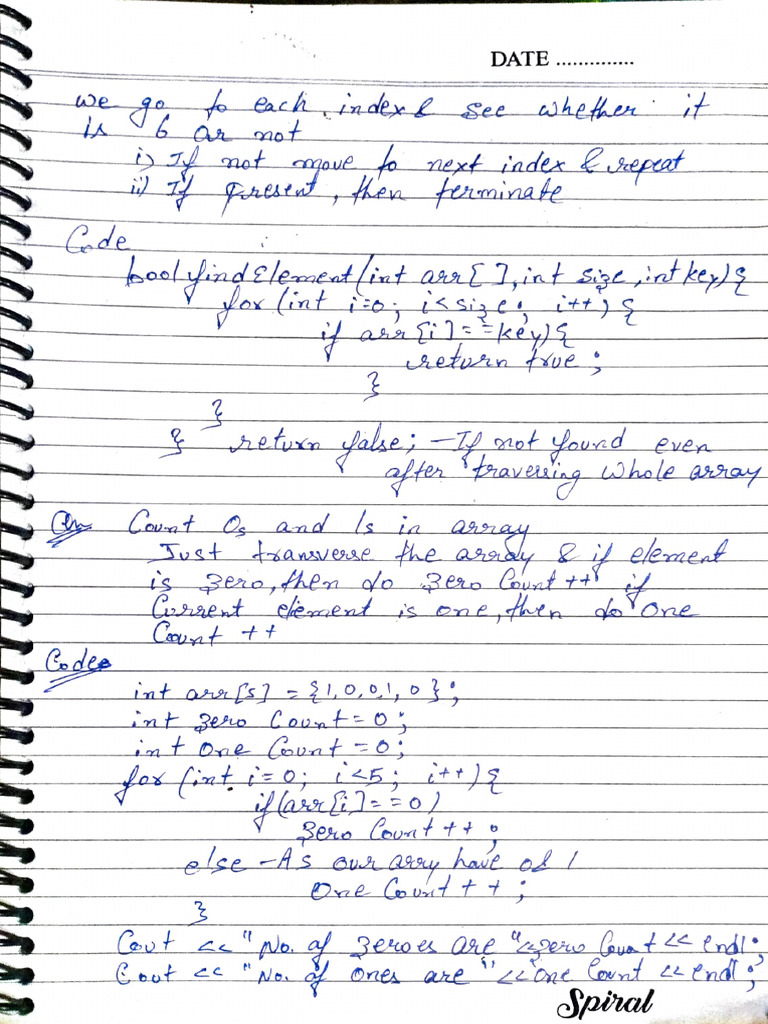 DATE ..............
we go to each index & see whether it
is 6 or not
i) If not move to next index & repeat
ii) If present, then terminate
Code
bool findElement(int arr[ ], int size, int key) {
for (int i=0; i<size; i++) {
if arr[i]==key) {
return true;
}
}
} return false; - If not found even
after traversing whole array
Qn Count 0s and 1s in array
Just transverse the array & if element
is zero, then do zero Count ++ if
Current element is one, then do One
Count ++
Code
int arr[5] = {1,0,0,1,0};
int zero Count = 0;
int One Count = 0;
for (int i=0; i<5; i++) {
if (arr[i]==0)
zero Count ++;
else - As our arry have 1
One Count ++;
}
Cout << "No. of zeroes are "<<zero Count << endl;
Cout << "No. of ones are "<<One Count << endl;
Spiral